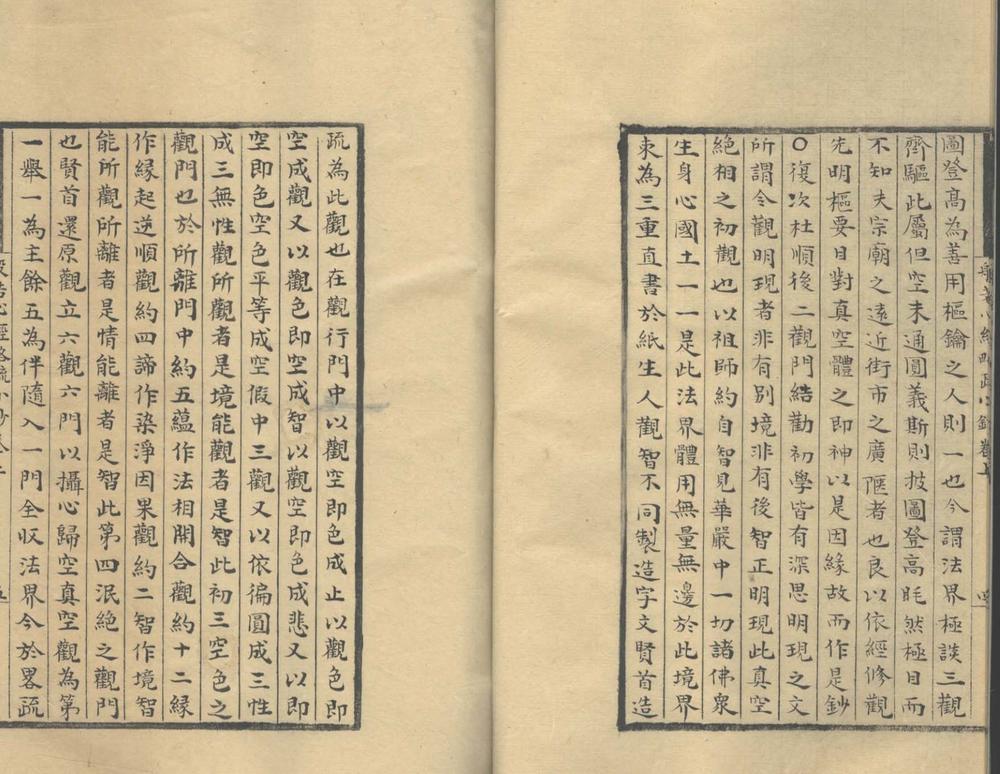 圖登髙為善用樞鑰之人則一也今謂法界極談三觀
齊驅此屬但空未通圓義斯則披圖登高眊然極目而
不知夫宗廟之遠近街市之廣陿者也良以依經修觀
先明樞要目對真空體之即神以是因緣故而作是鈔
○復次杜順後二觀門結勸初學皆有深思明現之文
所謂令觀明現者非有別境非有後智正明現此真空
絶相之初觀也以祖師約自智見華嚴中一切諸佛衆
生身心國土一一是此法界體用無量無邊於此境界
束為三重直書於紙生人觀智不同製造字文賢首造
疏為此觀也在觀行門中以觀空即色成止以觀色即
空成觀又以觀色即空成智以觀空即色成悲又以即
空即色空色平等成空假中三觀又以依徧圓成三性
成三無性觀所觀者是境能觀者是智此初三空色之
觀門也於所離門中約五蘊作法相開合觀約十二縁
作縁起逆順觀約四諦作染淨因果觀約二智作境智
能所觀所離者是情能離者是智此第四泯絶之觀門
也賢首還原觀立六觀六門以攝心歸空真空觀為第
一舉一為主餘五為伴隨入一門全収法界今於畧疏